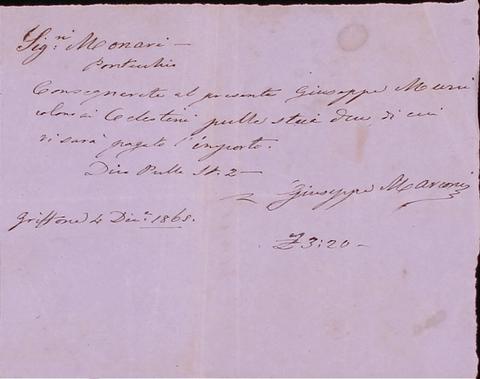 Sig.ri Monari —
Pontecchio
Consegnerete al presente Giuseppe Muri
colono ai Celestini pulle staia due, di cui
vi sarà pagato l'importo.
Dico Pulle St. 2 —
Giuseppe Marconi
Griffone 4 Dic.e 1868.
£ 3:20 —